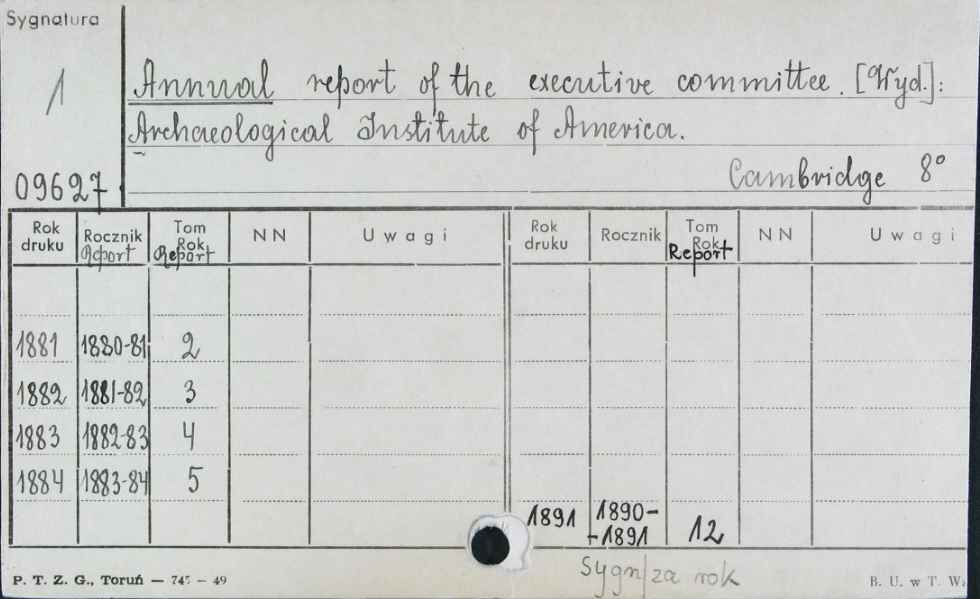 Sygnatura
1
Annual report of the executive committee. [Wyd.]:
Archaeological Institute of America.
Cambridge 8°
09627
Rok druku Rocznik Report Tom Rok Report NN Uwagi Rok druku Rocznik Tom Rok Report NN Uwagi
1881 1880-81 2
1882 1881-82 3
1883 1882-83 4
1884 1883-84 5
1891 1890-
-1891 12
Sygn/za rok
P. T. Z. G., Toruń — 747 — 49
B. U. w T. W.